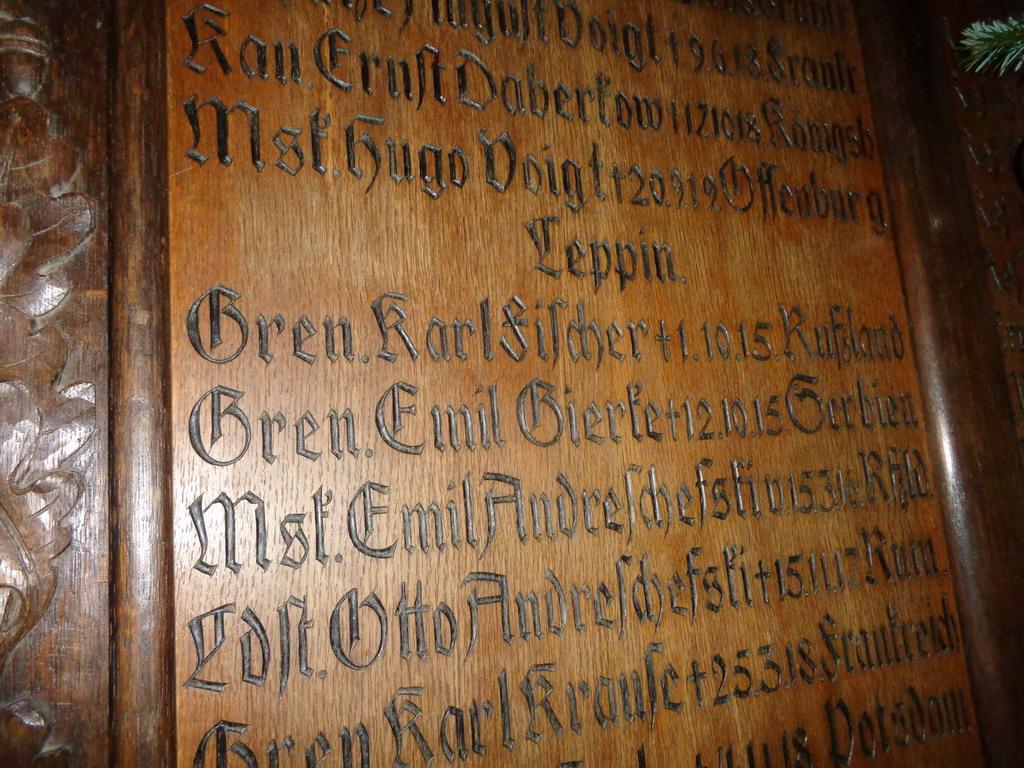 August Voigt † 9.6.18. Frankr.
Kan. Ernst Daberkow † 17.10.18. Königsb
Msk. Hugo Voigt † 20.9.19. Offenburg
Leppin.
Gren. Karl Fischer † 1.10.15. Rußland
Gren. Emil Gierke † 12.10.15 Serbien
Msk. Emil Andreschefski v. 15.3.16. Rßld.
Ldst. Otto Andreschefski † 15.11.17. Rum.
Gren. Karl Krause † 25.3.18. Frankreich
11.18. Potsdam.